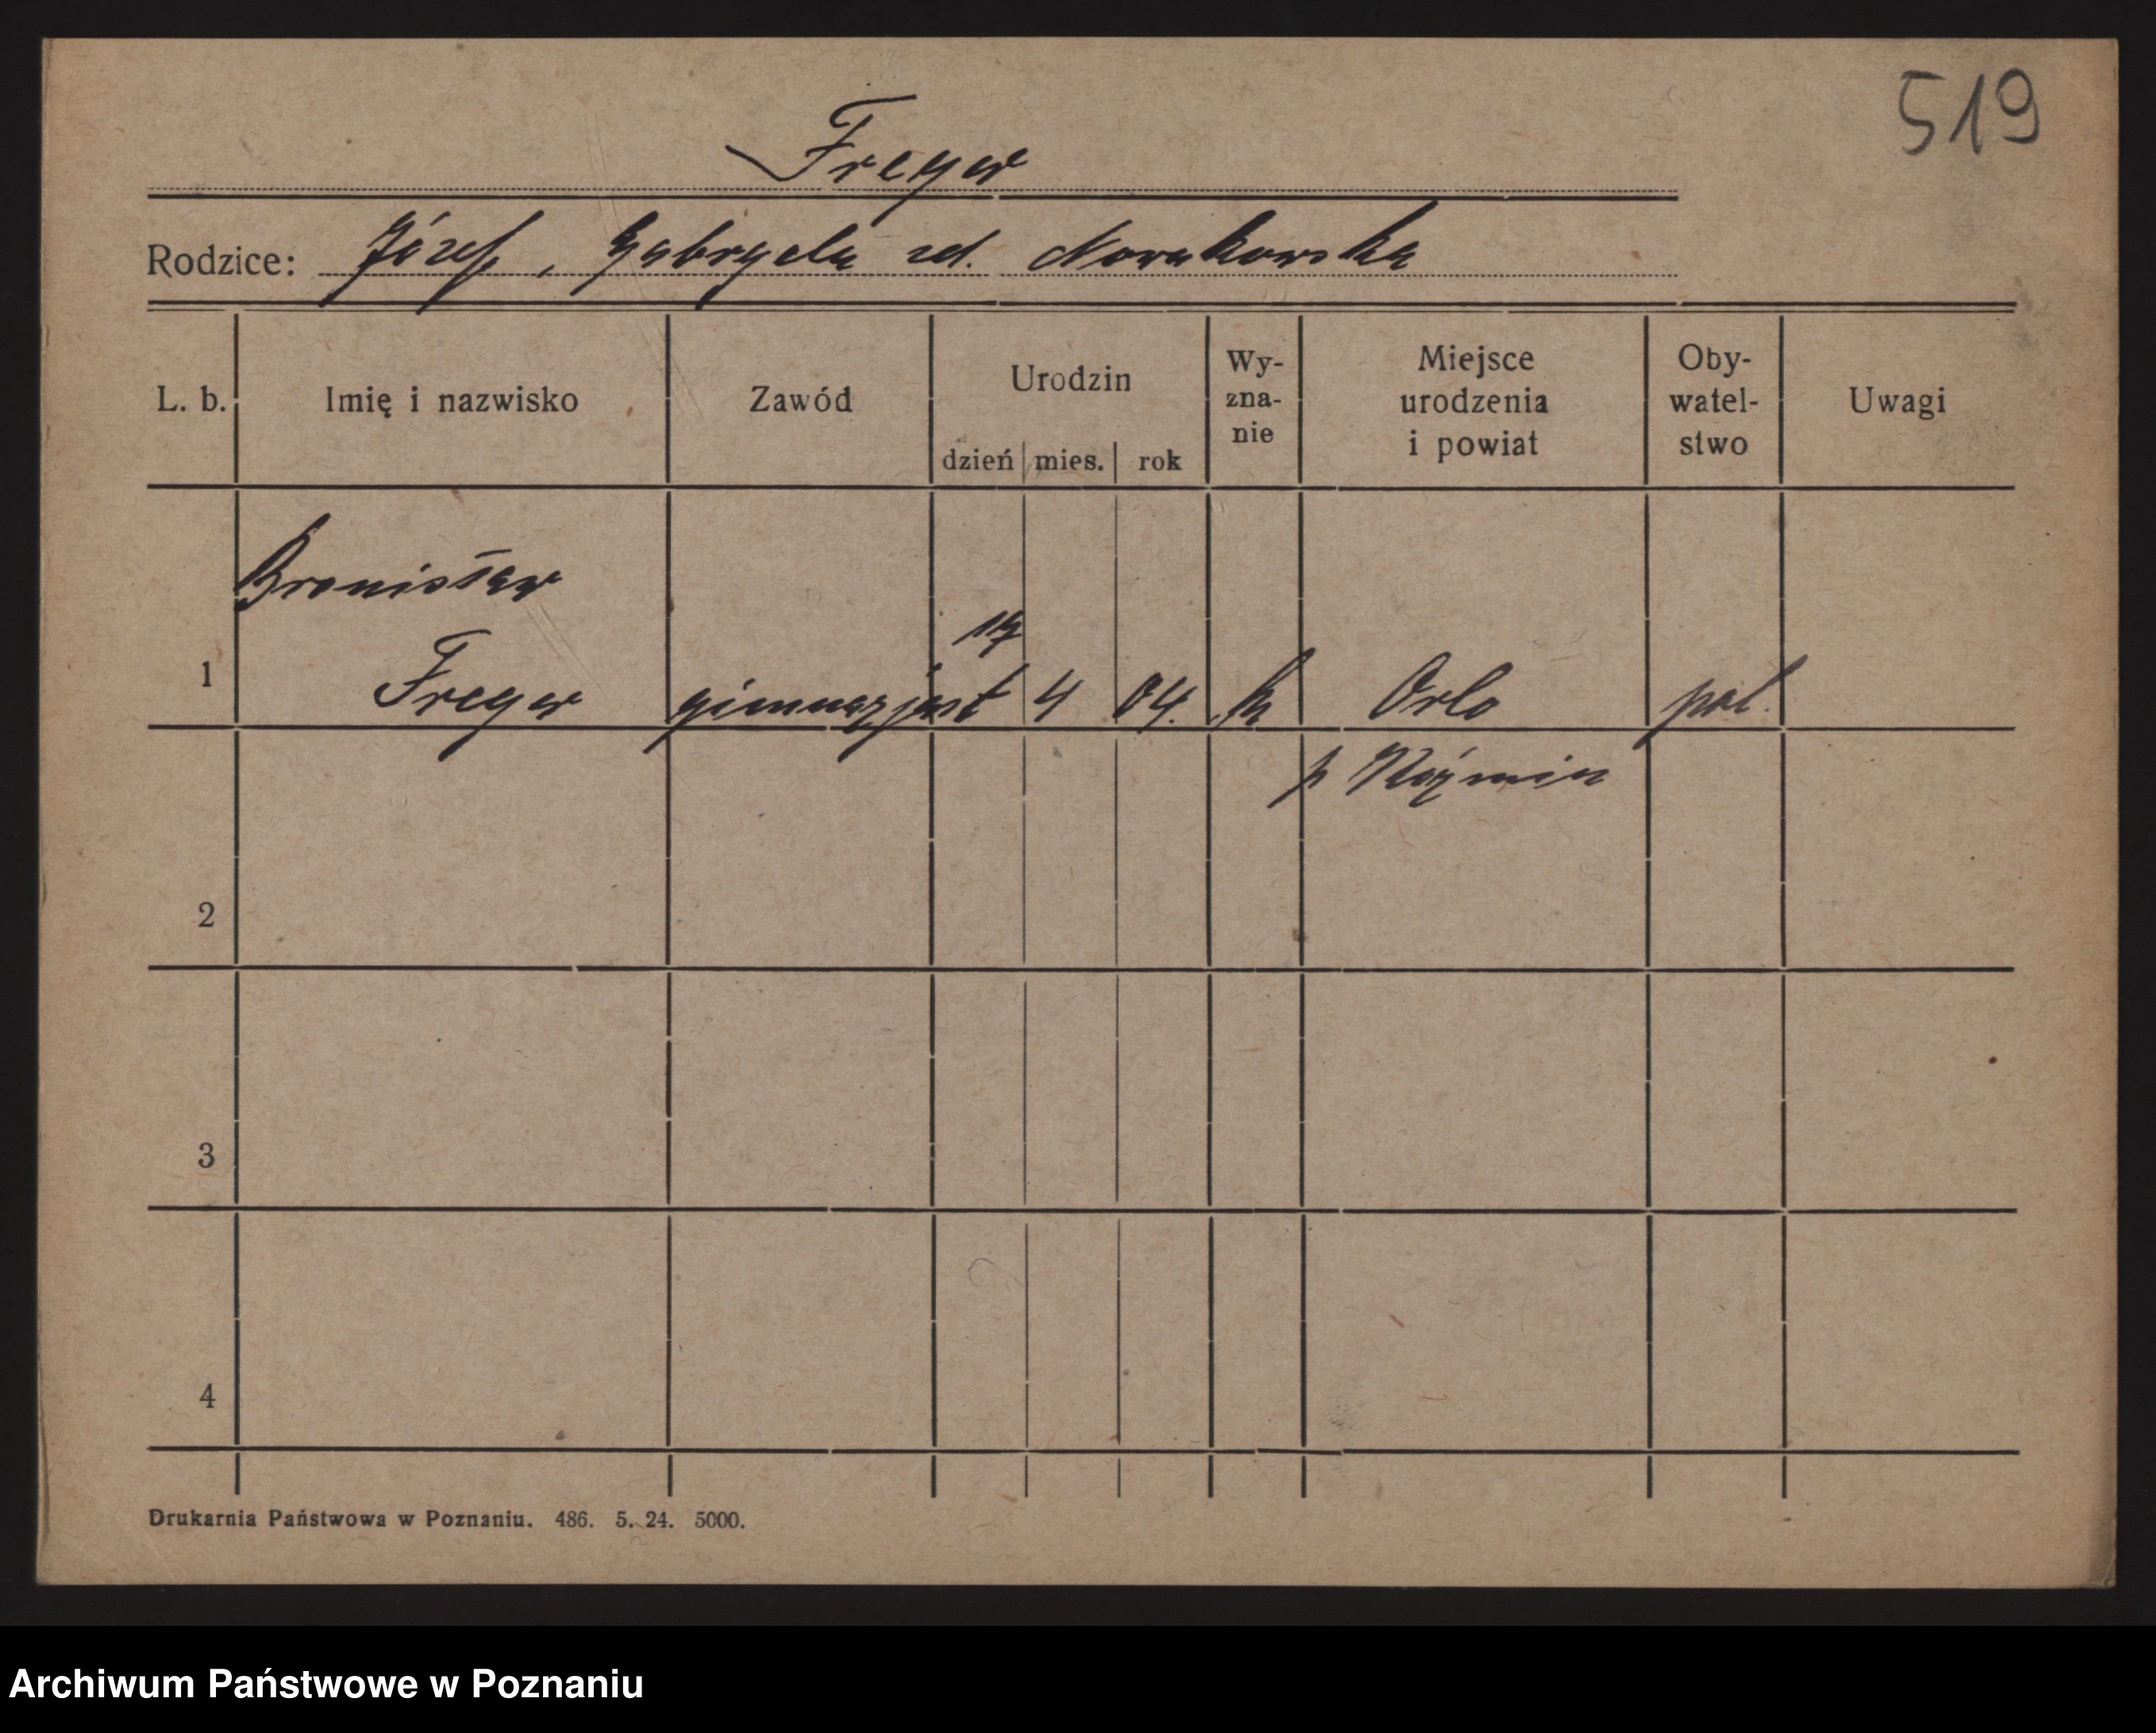 519
Freyer
Rodzice: Józef, Gabryela zd. Nowakowska
L. b. Imię i nazwisko Zawód Urodzin dzień mies. rok Wy-zna-nie Miejsce urodzenia i powiat Oby-watel-stwo Uwagi
Bronisław
1 Freyer gimnazjast 4 04. k Orla pol.
p Koźmin
2
3
4
Drukarnia Państwowa w Poznaniu. 486. 5. 24. 5000.
Archiwum Państwowe w Poznaniu